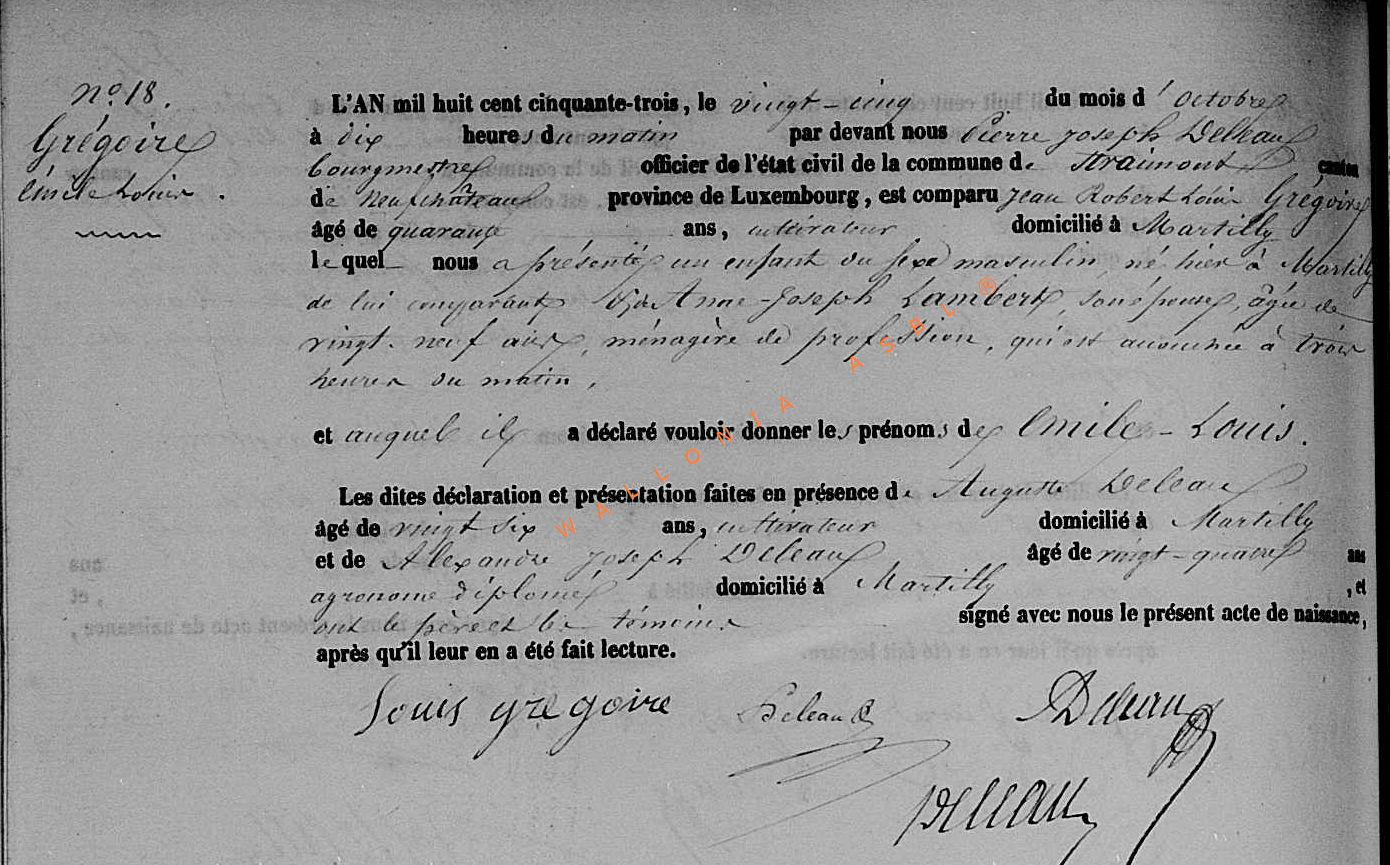 No. 18.
Grégoire
Emile Louis.
L'AN mil huit cent cinquante-trois, le vingt-cinq du mois d'octobre
à dix heures du matin par devant nous Pierre Joseph Deleau
bourgmestre officier de l'état civil de la commune de Straimont, canton
de Neufchâteau province de Luxembourg, est comparu Jean Robert Louis Grégoire
âgé de quarante ans, cultivateur domicilié à Martilly
lequel nous a présenté un enfant du sexe masculin né hier à Martilly
de lui comparant & de Anne-Joseph Lambert, son épouse, âgée de
vingt-neuf ans, ménagère de profession, qui est accouchée à trois
heures du matin,
et auquel il a déclaré vouloir donner les prénoms de Emile-Louis.
Les dites déclaration et présentation faites en présence de Auguste Deleau
âgé de vingt six ans, cultivateur domicilié à Martilly
et de Alexandre Joseph Deleau âgé de vingt-quatre ans
agronome diplomé domicilié à Martilly, et
ont le père et les témoins signé avec nous le présent acte de naissance,
après qu'il leur en a été fait lecture.
Louis gregoire Deleau ADeleau
Deleau
WALLONIA ASBL ®